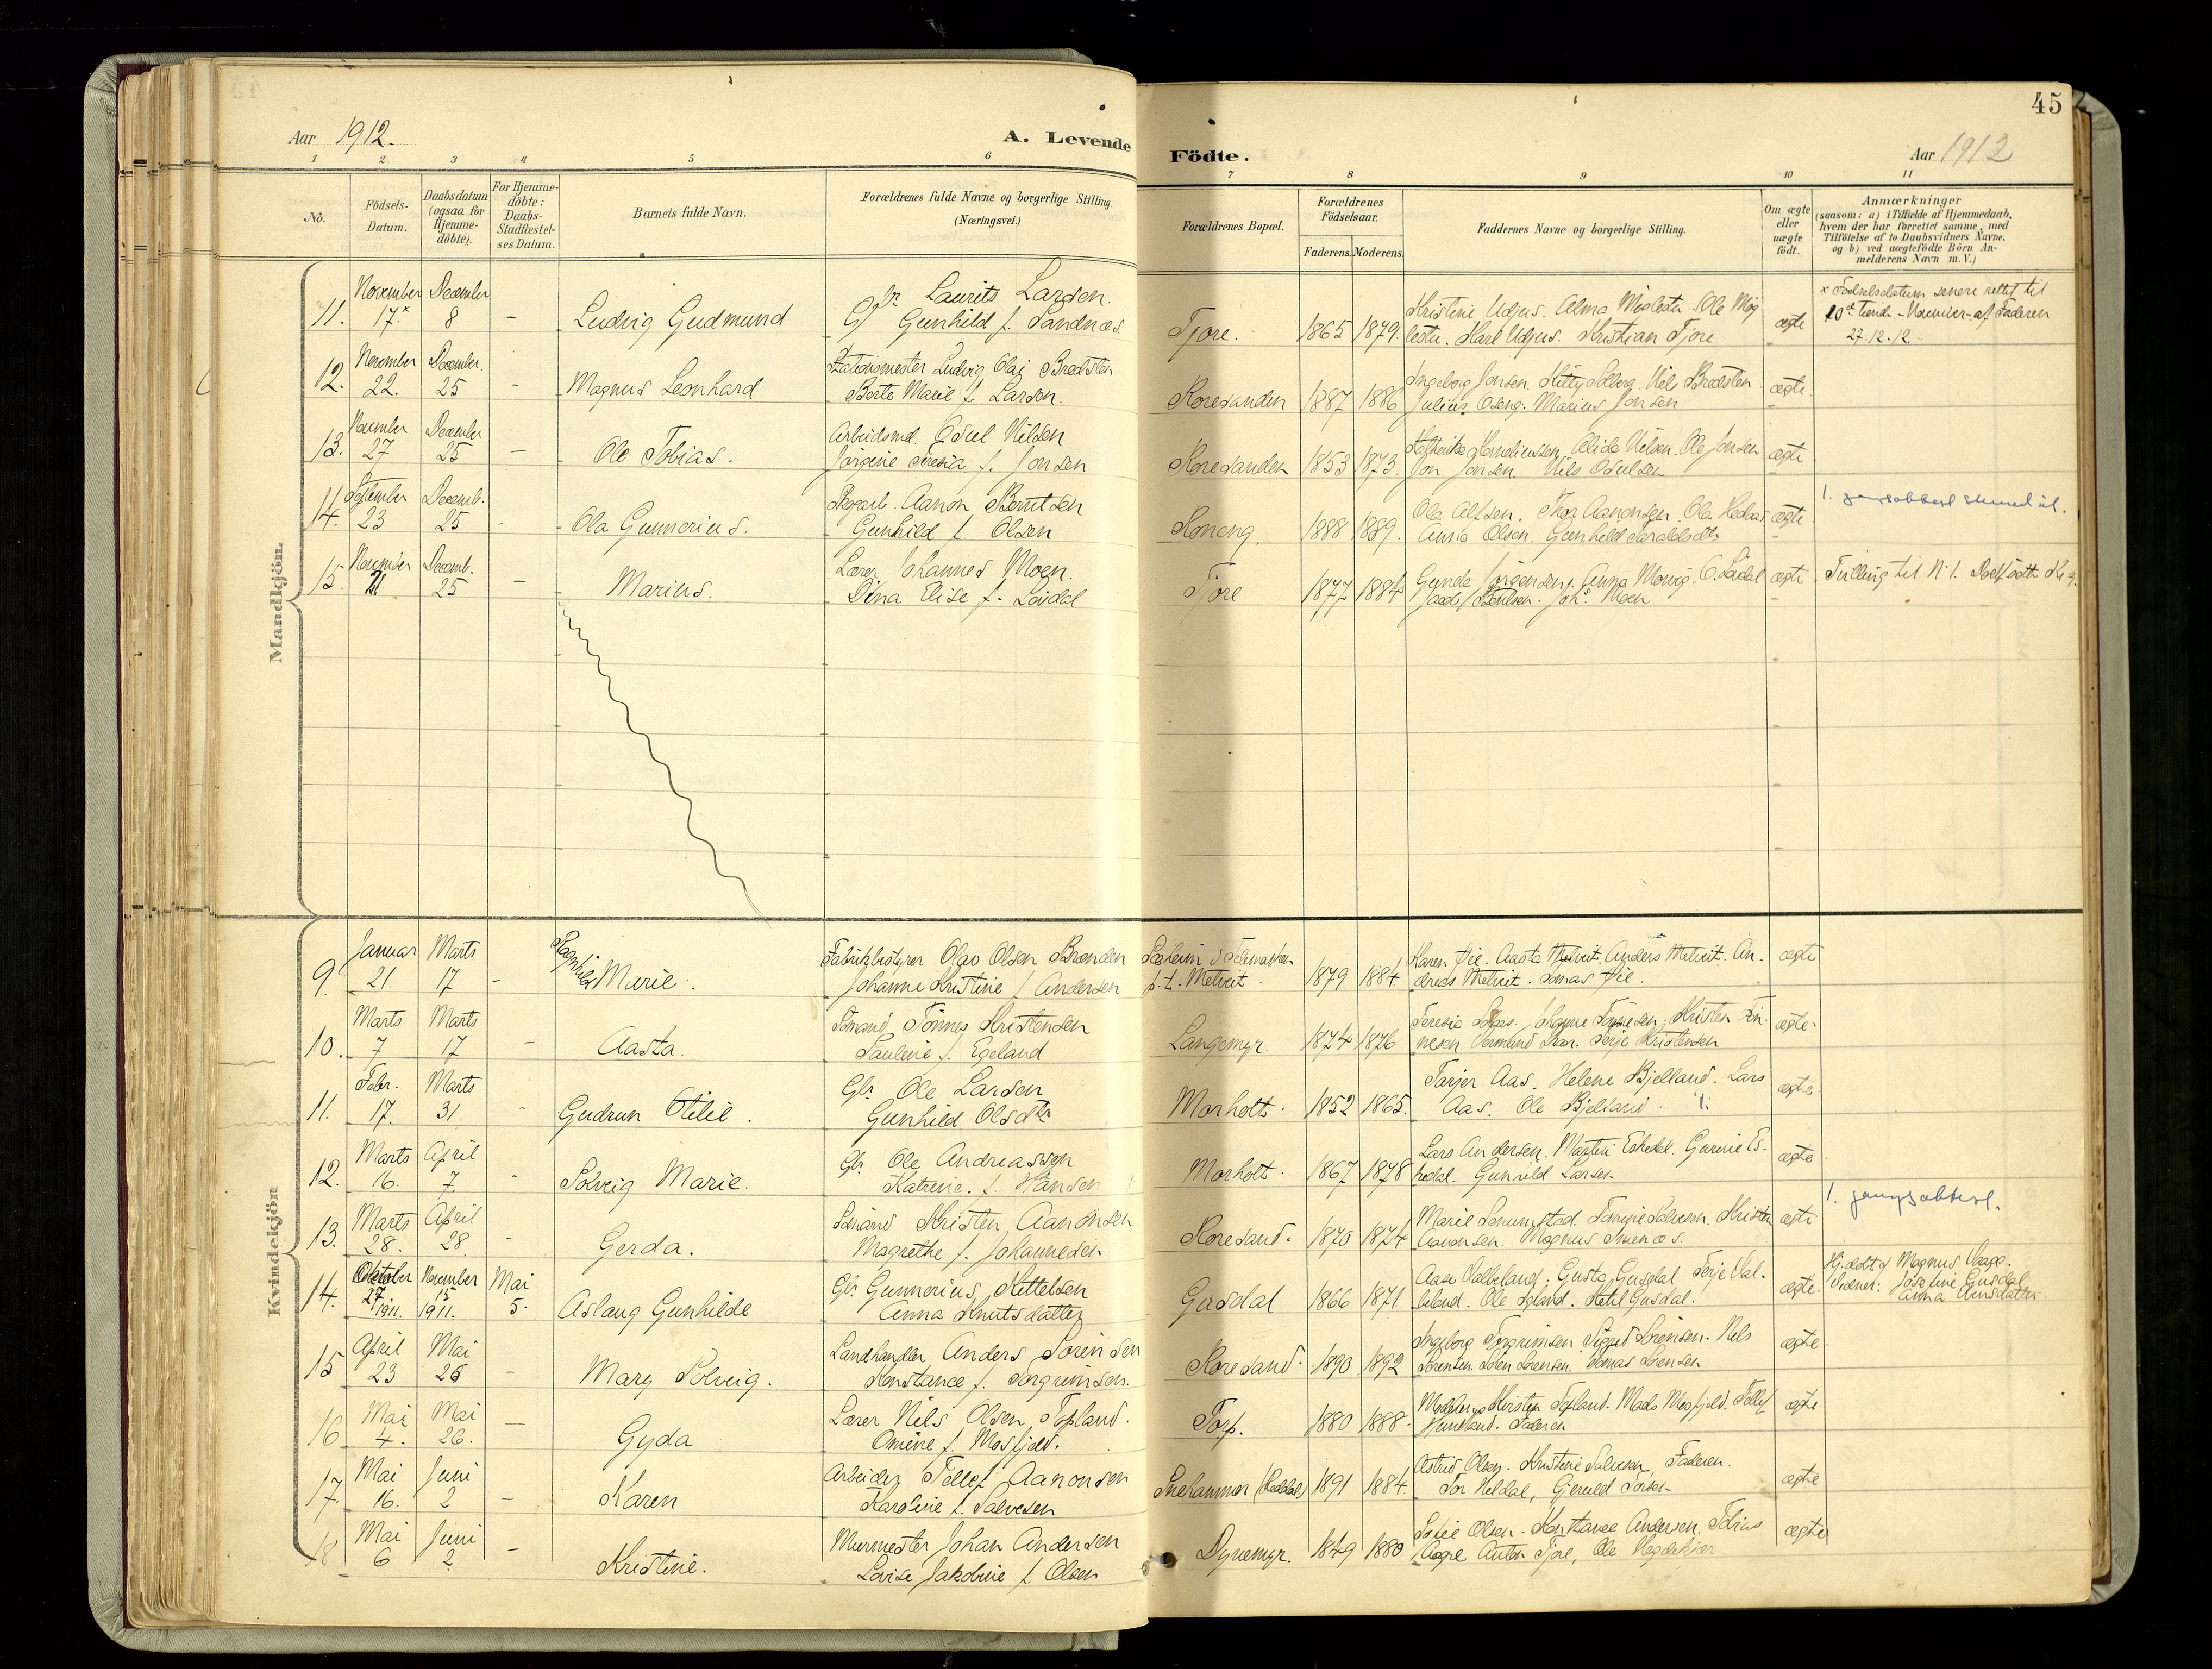 45
Aar 1912.
A. Levende Födte.
Aar 1912
1 2 3 4 5 6 7 8 9 10 11
No.
Födsels-Datum.
Daabsdatum (ogsaa for Hjemme-döbte).
For Hjemme-döbte: Daabs-Stadfæstel-ses Datum.
Barnets fulde Navn.
Forældrenes fulde Navne og borgerlige Stilling. (Næringsvei.)
Forældrenes Bopæl.
Forældrenes Födselsaar.
Faderens. Moderens.
Faddernes Navne og borgerlige Stilling.
Om ægte eller uægte födt.
Anmærkninger
(saasom: a) i Tilfælde af Hjemmedaab,
hvem der har forrettet samme, med
Tilföielse af to Daabsvidners Navne,
og b) ved uægtefödte Börn An-
melderens Navn m. V.)
Mandkjön.
11. November 17 × December 8 - Ludvig Gudmund
Gbr. Laurits Larsen.
Gunhild f. Sandnæs
Tjore. 1865 1879.
Kristine Udjus. Alma Møglestu. Ole Møg
lestu. Karl Udjus. Kristian Tjore
ægte
× Fødselsdatum senere rettet til
10de Tiende - November - af Faderen
27.12.12
12. November 22. December 25 - Magnus Leonhard
Stationsmester Ludvig Olai Bredsten
Berte Marie f. Larsen.
Roresanden 1887 1886
Ingeborg Jensen. Kitty Solberg. Niels Bredsten
Julius Oseng. Marius Jonsen
ægte
13. November 27 December 25 - Ole Tobias.
Arbeidsmd. Osul Nilsen
Jørgine Teresia f. Jonsen
Roresanden 1853 1873.
Alida Nilsen. Ole Jonsen
Jon Jonsen. Nils Osulsen
ægte
14. September 23 Decemb. 25 - Ola Gunnerius.
Aanon Berntsen
Gunhild f. Olsen
Roneng. 1888 1889.
Ole Alfsen. Thor Aanonsen. Ola
Olsen. Gunhild
ægte
1.
15. November 21 Decemb. 25 - Marius.
Lærer Johannes Moen.
Dina Elise f. Løvdal
Tjore 1877 1884
Gunda Jørgensen. Anna Monrig. O. Løvdal
Berntsen. Johs. Moen
ægte
Tvilling til N 1. Dødfødte
Kvindekjön
9. Januar 21. Marts 17 - Ragnhild Marie.
Fabrikbestyrer Olav Olsen Brenden
Johanne Kristine f. Andersen
p.t. Metveit. 1879 1884
Karen Fie. Aasta Metveit. Anders Metveit. An-
dreas Metveit. Tomas Fie.
ægte
10. Marts 7 Marts 17 - Aasta.
Sømand Tønnes Kristensen
Pauline f. Egeland
Langemyr. 1874 1876
Teresia Johanne Tønnesen. Kristen Tøn-
nesen. Terje Kristensen
ægte
11. Febr. 17. Marts 31. - Gudrun Otilie.
Gbr. Ole Larsen
Gunhild Olsdtr.
Morholt. 1852 1865.
Tarjer Aas. Helene Bjelland. Lars
Aas. Ole Bjelland.
ægte
12. Marts 16. April 7. - Solveig Marie.
Gbr. Ole Andreassen
Katrine. f. Hansen
Morholt. 1867 1878
Lars Andersen. Martin Eskedal. Gurine Es-
kedal. Gunhild Larsen
ægte
13. Marts 28. April 28 - Gerda.
Sømand Kristen Aanonsen
Magrethe f. Johannesen
Roresand. 1870 1874
Marie Tanggie Salvesen. Kristen
Aanonsen. Magnus Smenæs.
ægte
1.
14. Oktober 27 1911. November 15 1911. Mai 5. Aslaug Gunhilde
Gbr. Gunnerius Kittelsen
Anna Knutsdatter
Gusdal 1866 1871
Aase Valbeland. Gusta Gusdal Terje Val-
beland. Ole Igland. Ketil Gusdal.
ægte.
Hj.døbt af Magnus Vaage.
Vidner: Josefine Gusdal
Anna
15 April 23 Mai 26 - Mary Solveig.
Landhandler Anders Sørensen
Konstance f. Torgrimsen.
Roresand. 1890 1892
Ingeborg Torgrimsen Sigrid Sørensen. Nils
Sørensen Søren Sørensen. Tomas Sørensen
ægte
16 Mai 4. Mai 26. - Gyda
Lærer Nils Olsen Topland.
Omine f. Mosfjeld.
Torp. 1880 1888.
Kirsten Topland. Mads Mosfjeld. Tellef
Hundland. Faderen
ægte
17. Mai 16. Juni 2 - Karen
Arbeider Tellef Aanonsen
Karoline f. Salvesen
Snehammer (Reddal) 1891 1884.
Astrid Olsen. Kristine Salvesen, Faderen.
Tor Heldal, Gjeruld
ægte
18 Mai 6 Juni 2 - Kristine.
Murmester Johan Andersen
Lovise Jakobine f. Olsen
Dyremyr. 1849 1880
Sofie Olsen. Konstanse Andersen. Tobias
Aagre Anton Tjore, Ole
ægte